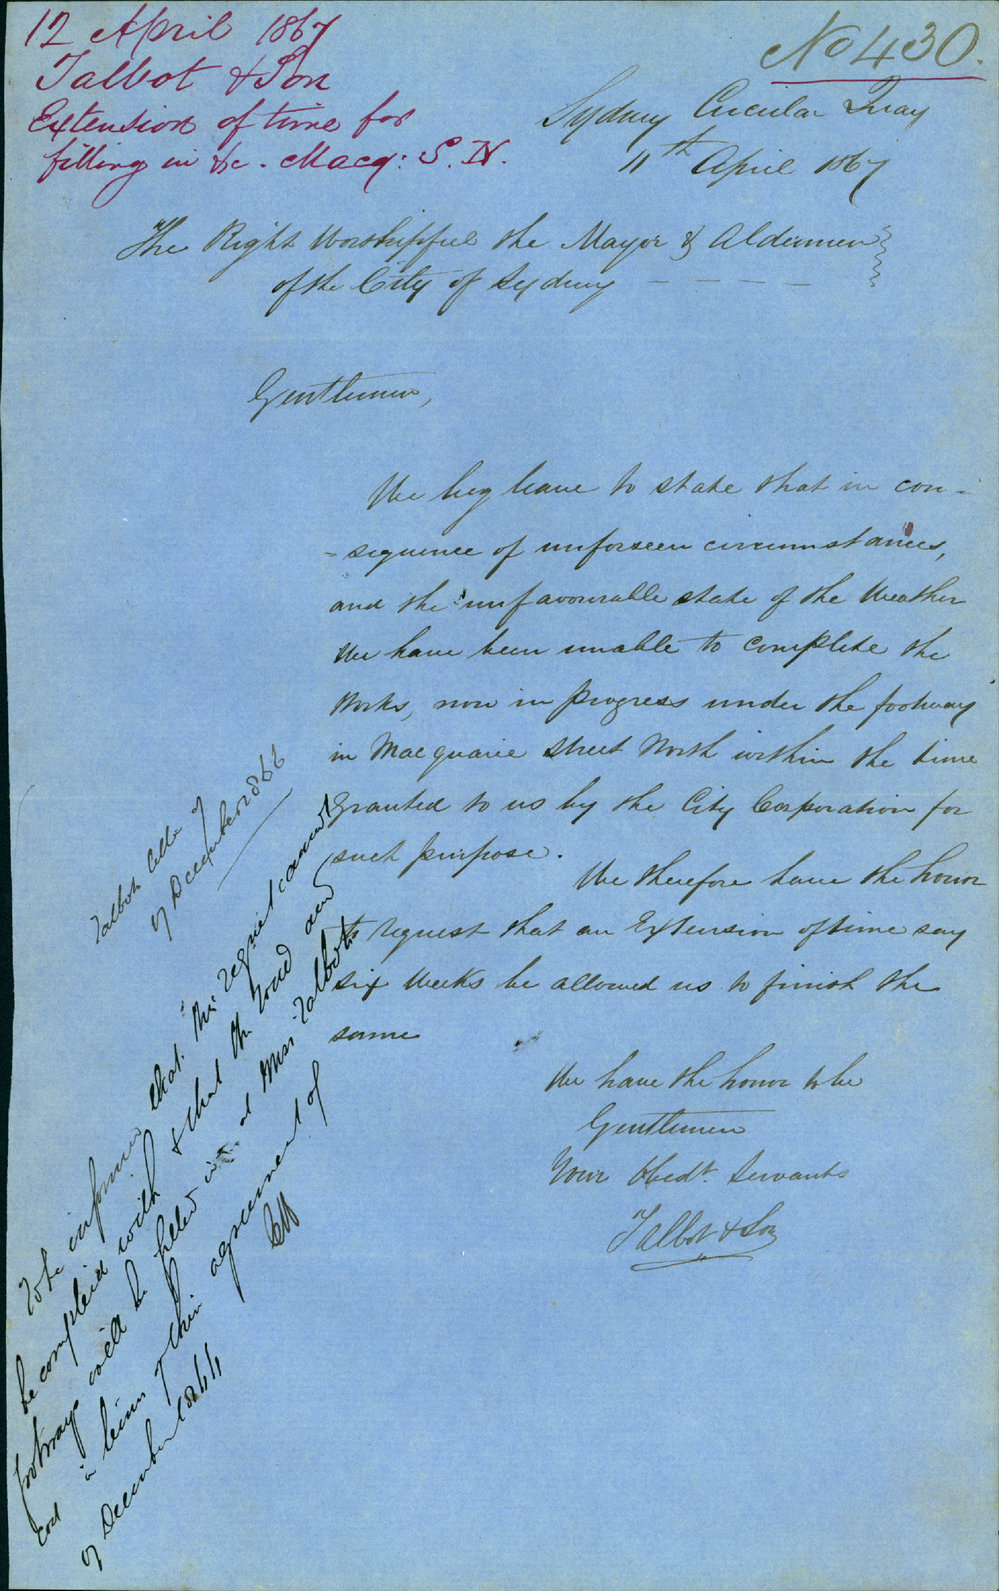 12 April 1867
Talbot & Son
Extension of time for
filling in &c. Macq: S. N.
No 430.
Sydney Circular Quay
11th April 1867
The Right Worshipful the Mayor & Aldermen
of the City of Sydney
Gentlemen,
We beg leave to state that in con-
-sequence of unforseen circumstances,
and the unfavourable state of the Weather
We have been unable to complete the
Works, now in progress under the footway
in Macquarie Street North within the time
Granted to us by the City Corporation for
such purpose.
We therefore have the honor
to request that an Extension of time say
six Weeks be allowed us to finish the
same
We have the honor to be
Gentlemen
Your Obedt. Servants
Talbot & Son
Talbots
of December 1866
To be informed that this request cannot
be complied with & that the road and
footways will be filled in at Messrs Talbots
cost in terms of their agreement of
of December 1866